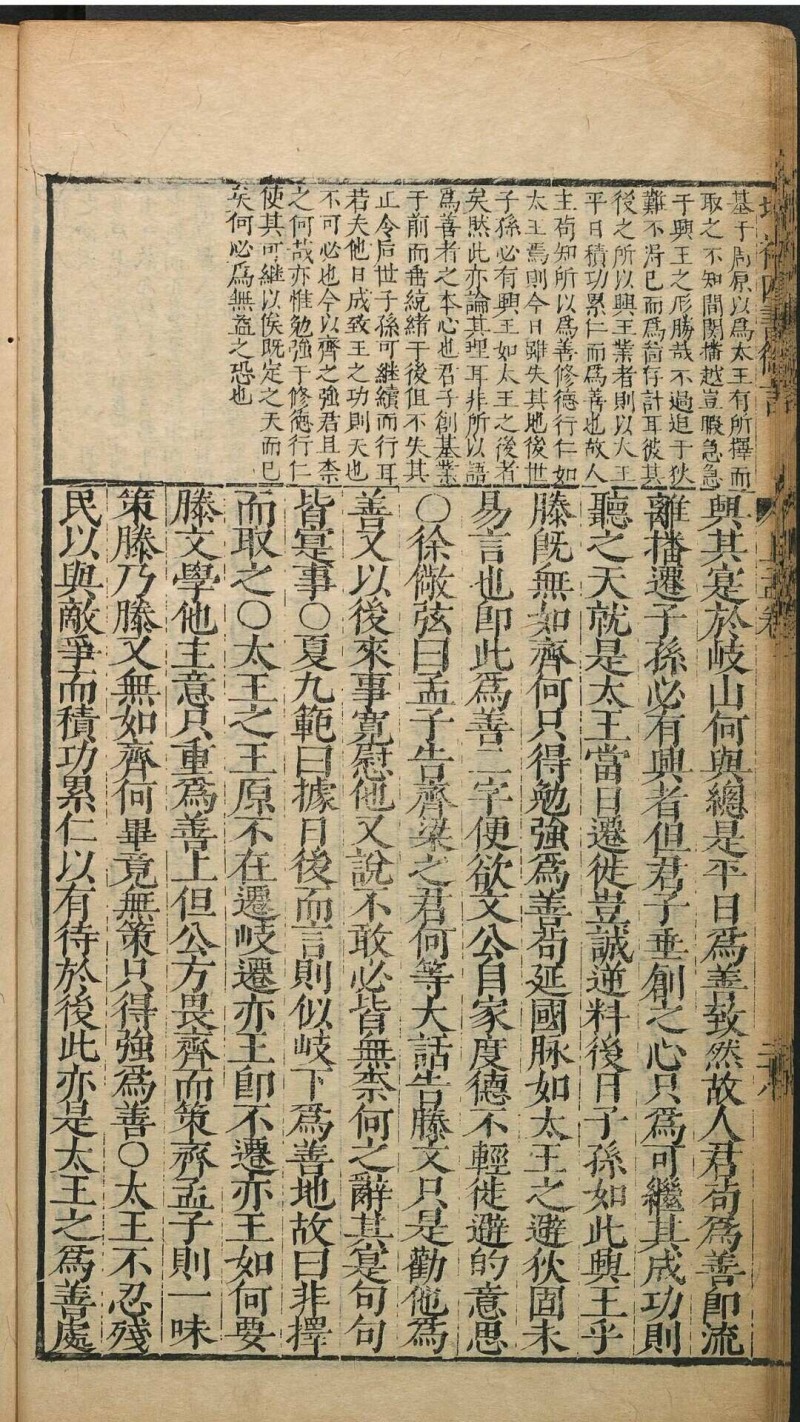 基于周原以爲太王有所擇而
取之不知間關播越豈暇急急
于興王之形勝哉不過迫于狄
難不得已而爲苟存計耳彼其
後之所以興王業者則以大王
平日積功累仁而爲善也故人
主苟知所以爲善修德行仁如
太王焉則今日雖失其地後世
子孫必有興王如太王之後者
矣然此亦論其理耳非所以語
爲善者之本心也君子創基業
于前而垂統緒于後但不失其
正令后世子孫可継續而行耳
若夫他日成敗王之功則天也
不可必也今以齊之強君且柰
之何哉亦惟勉強于修德行仁
使其可継以俟既定之天而巳
矣何必爲無益之恐也
興其寔於岐山何與總是平日爲善致然故人君苟爲善即流
離播遷子孫必有興者但君子垂創之心只爲可繼其成功則
聽之天就是太王當日遷徙豈誠逆料後日子孫如此興王乎
滕既無如齊何只得勉強爲善苟延國脉如太王之避狄固未
易言也即此爲善二字便欲文公自家度德不輕徙避的意思
○徐儆弦曰孟子告齊梁之君何等大話告滕文只是勸他爲
善又以後來事寬慰他又說不敢必皆無柰何之辭其寔句句
皆寔事○夏九範曰據日後而言則似岐下爲善地故曰非擇
而取之○太王之王原不在遷岐遷亦王即不遷亦王如何要
滕文學他主意只重爲善上但公方畏齊而策齊孟子則一味
策滕乃滕又無如齊何畢竟無策只得強爲善○太王不忍殘
民以與敵爭而積功累仁以有待於後此亦是太王之爲善處